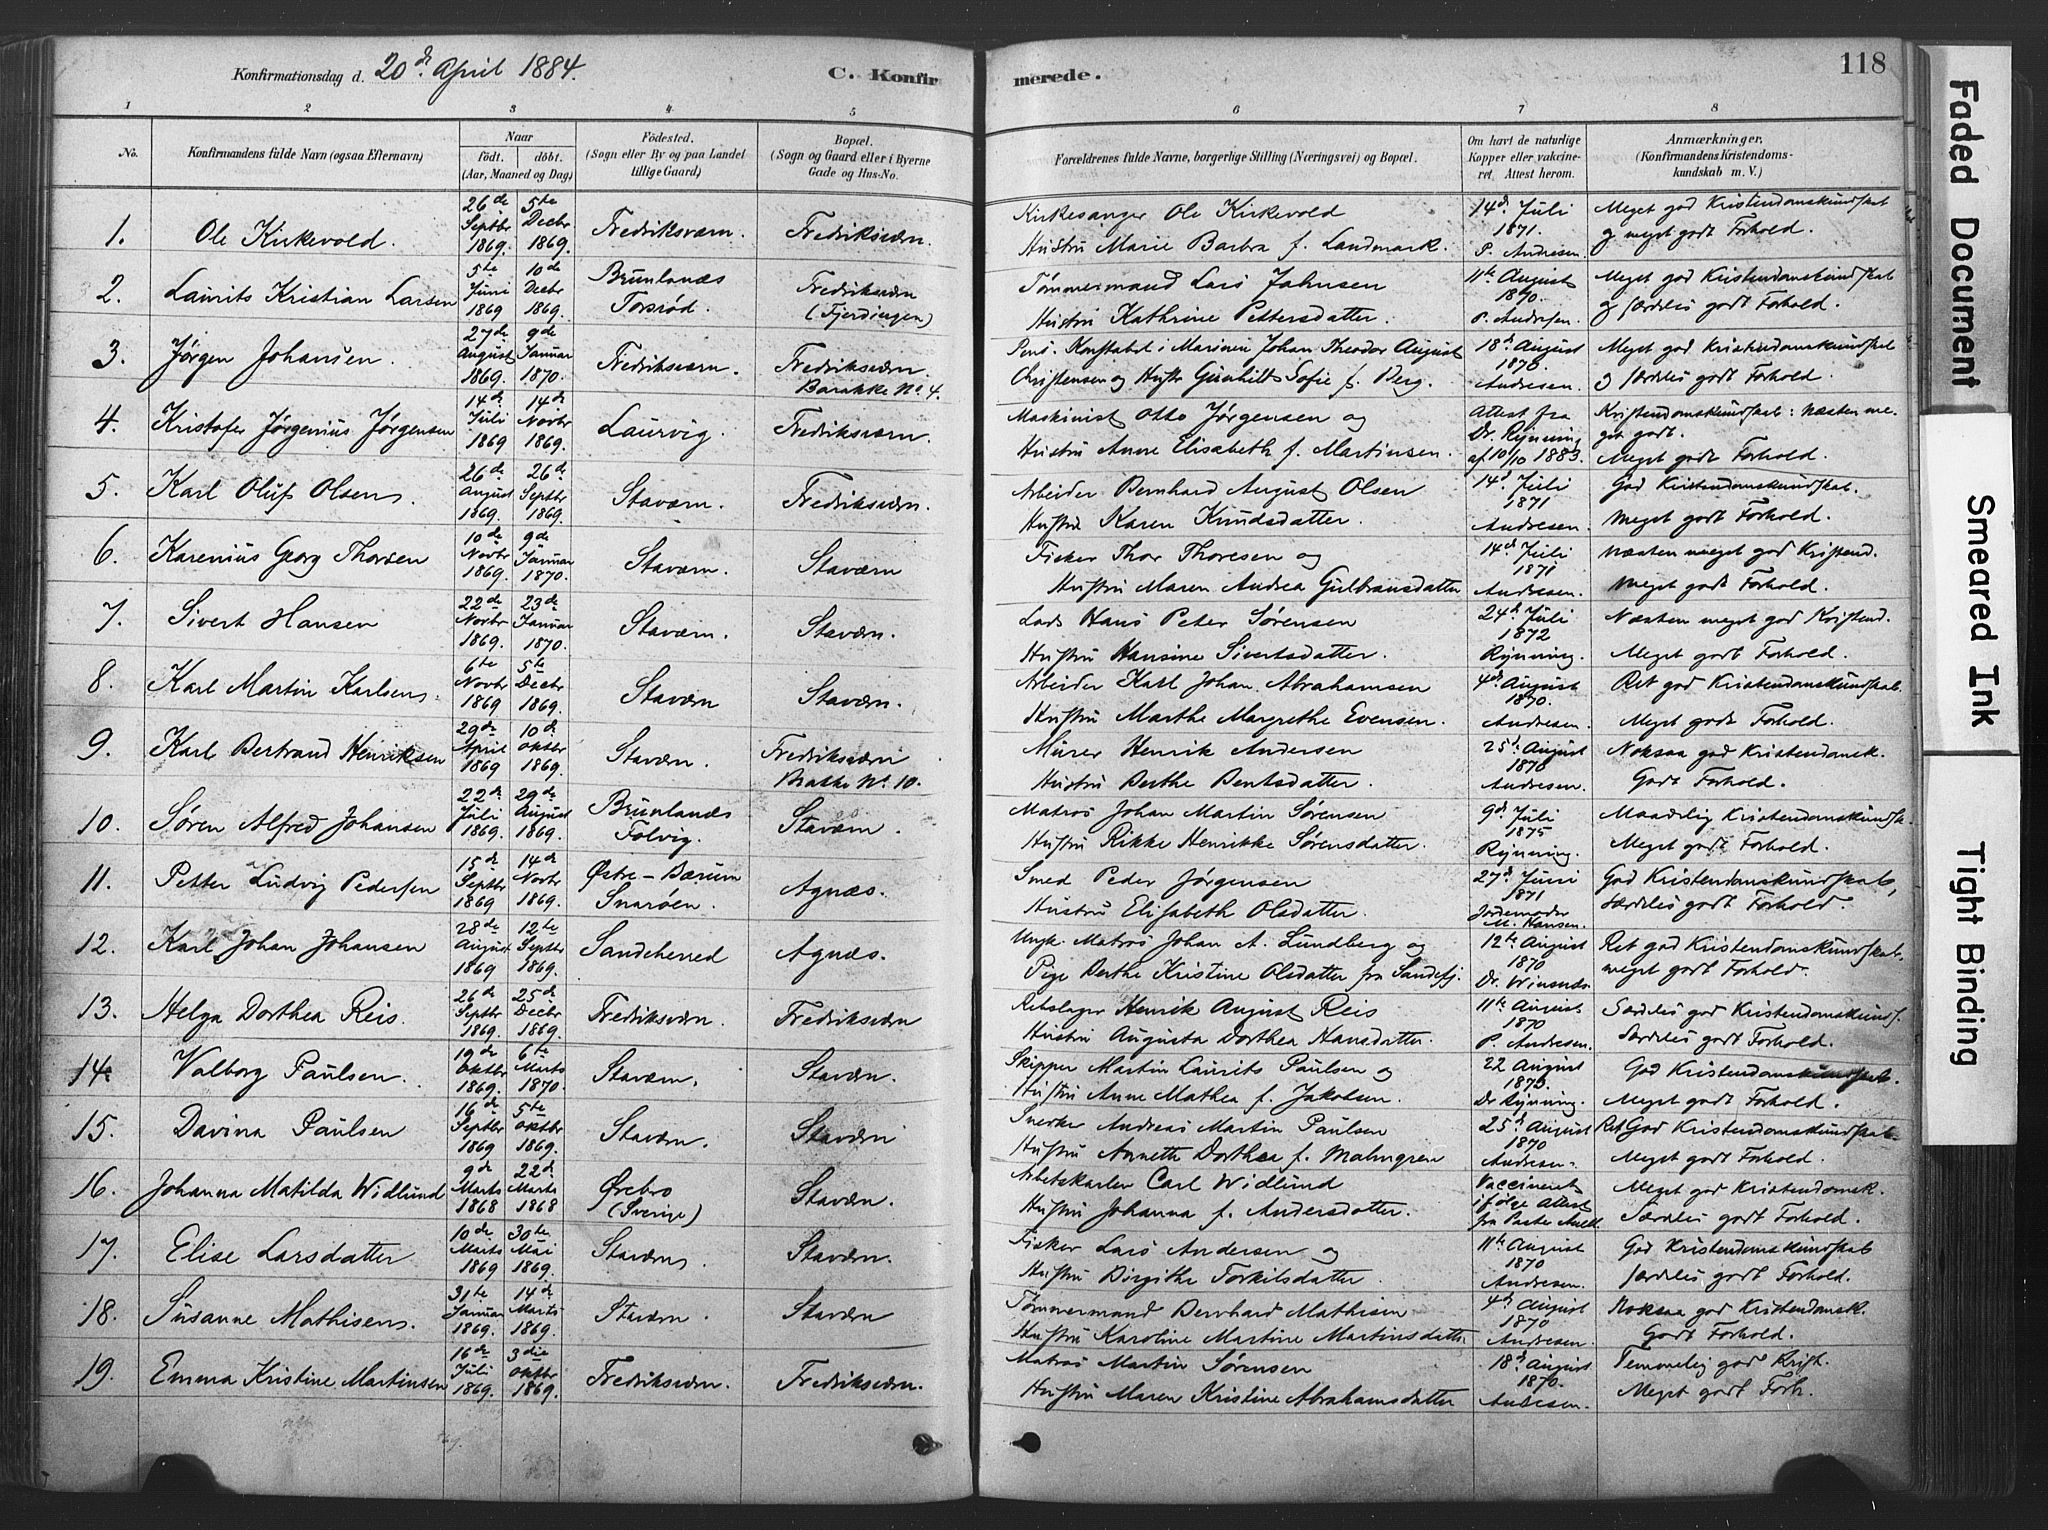 Konfirmationsdag d. 20de April 1884. C. Konfirmerede. 118
1 2 3 4 5 6 7 8
No. Konfirmandens fulde Navn (ogsaa Efternavn) Naar født. døbt. (Aar, Maaned og Dag) Födested. (Sogn eller By og paa Landet tillige Gaard) Bopæl. (Sogn og Gaard eller i Byerne Gade og Hus-No.
Forældrenes fulde Navne, borgerlige Stilling (Næringsvei) og Bopæl. Om havt de naturlige Kopper eller vakcineret. Attest herom. Anmærkninger. (Konfirmandens Kristendomskundskab m. V.)
1. Ole Kirkevold. 26de Septbr 1869. 5te Decbr 1869. Fredriksværn. Fredriksværn.
Kirkesanger Ole Kirkevold 14d. Juli 1871. P. Andresen. Meget god Kristendomskundskab
Hustru Marie Barbra f. Landmark. og meget godt Forhold.
2. Laurits Kristian Larsen 5te Juni 1869 10de Decbr 1869. Brunlanæs Torsrød. Fredriksværn (Fjerdingen)
Tømmermand Lars Johnsen 11te August 1870. P. Andresen. Meget god Kristendomskundskab
Hustru Kathrine Pettersdatter. og særdeles godt Forhold.
3. Jørgen Johansen. 27de August 1869. 9de Januar 1870. Fredriksværn. Fredriksværn. Barakke No. 4.
Pens. Konstabel i Marinen Johan Theodor August 18de August 1870. Andresen. Meget god Kristendomskundskab
Christensen og Hustr Gunhild Sofie f. Berg. og særdeles godt Forhold.
4. Kristofer Jørgenius Jørgensen 14de Juli 1869 14de Novbr 1869. Laurvig. Fredriksværn.
Maskinist Otto Jørgensen og Attest fra Dr. Rynning af 10/10 1883. Kristendomskundskab: Næsten meget godt.
Hustru Anne Elisabeth f. Martinsen. Meget godt Forhold.
5. Karl Oluf Olsen. 26de August 1869. 26de Septbr 1869. Staværn. Fredriksværn.
Arbeider Bernhard August Olsen 14d Juli 1871 Andresen. God Kristendomskundskab.
Hustru Karen Knudsdatter. Meget godt Forhold.
6. Karenius Georg Thorsen 10de Novbr 1869. 9de Januar 1870. Staværn. Staværn
Fisker Thor Thoresen og 14d Juli 1871 Andresen. Næsten meget god Kristend.
Hustru Maren Andrea Gulbransdatter Meget godt Forhold.
7. Sivert Hansen 22de Novbr 1869. 23de Januar 1870. Staværn. Staværn.
Lods Hans Peter Sørensen 24d Juli 1872 Rynning. Næsten meget god Kristend.
Hustru Hansine Sivertsdatter. Meget godt Forhold.
8. Karl Martin Karlsen. 6te Novbr 1869 5te Decbr 1869. Staværn Staværn.
Arbeider Karl Johan Abrahamsen 4d. August 1870. Andresen. Ret god Kristendomskundskab.
Hustru Marthe Margrethe Evensen. Meget godt Forhold.
9. Karl Bertrand Henriksen 29de April 1869 10de Oktbr 1869. Staværn. Fredriksværn No. 10.
Murer Henrik Andersen 25d. August 1870 Andresen. Noksaa god Kristendomsk.
Hustru Berthe Bentsdatter. Godt Forhold.
10. Søren Alfred Johansen 22de Juli 1869. 29de August 1869. Brunlanæs Folvig. Staværn.
Matros Johan Martin Sørensen 9d. Juli 1875 Rynning. Maadelig Kristendomskundsk.
Hustru Rikke Henrikke Sørensdatter. Meget godt Forhold.
11. Petter Ludvig Pedersen 15de Septbr 1869 14de Novbr 1869. Østre-Bærum Snarøen. Agnæs.
Smed Peder Jørgensen 27d. Juni 1871 Jordemoder M. Hansen. God Kristendomskundskab,
Hustru Elisabeth Olsdatter. Særdeles godt Forhold.
12. Karl Johan Johansen 28de August 1869 12te Septbr 1869. Sandeherred Agnæs.
Ungk. Matros Johan A. Lundberg og 12te August 1870 Dr. Ret god Kristendomskundskab.
Pige Berthe Kristine Olsdatter fra Sandefj. meget godt Forhold.
13. Helga Dorthea Reis. 26de Septbr 1869. 25de Decbr 1869. Fredriksværn. Fredriksværn
Rebslager Henrik August Reis 11te August 1870 P. Andresen. Særdeles god Kristendomskunds.
Hustru Augusta Dorthea Hansdatter. Særdeles godt Forhold.
14. Valborg Paulsen. 19de Oktbr 1869. 6te Marts 1870. Staværn. Staværn.
Skipper Martin Laurits Paulsen og 22 August 1873. Dr Rynning. God Kristendomskundskab.
Hustru Anne Mathea f. Jakobsen. Meget godt Forhold.
15. Davina Paulsen 16de Septbr 1869 5te Oktbr 1869. Staværn. Staværn
Snekker Andreas Martin Paulsen 25d August 1870 Andresen. Ret God Kristendomskundskab.
Hustru Annette Dorthea f. Malmgren Meget godt Forhold.
16. Johanna Matilda Widlund 9de Marts 1868 22de Marts 1868 Ørebro (Sverige) Staværn.
Arbetskarlen Carl Widlund Vaccineret ifølge Attest fra Meget god Kristendomsk.
Hustru Johanna f. Andersdatter. Særdeles godt Forhold.
17. Elise Larsdatter 10de Marts 1869 30te Mai 1869. Staværn. Staværn.
Fisker Lars Andersen og 11te August 1870 Andresen. God Kristendomskundskab
Hustru Birgithe Torkilsdatter. særdeles godt Forhold.
18. Susanne Mathisen. 31te Januar 1869. 14de Marts 1869. Staværn. Staværn
Tømmermand Bernhard Mathisen 4de August 1870 Andresen. Noksaa god Kristendomsk.
Hustru Karoline Martine Martinsdatter Godt Forhold.
19. Emma Kristine Martinsen 16de Juli 1869. 3die Oktbr 1869. Fredriksværn. Fredriksværn.
Matros Martin Sørensen 18d August 1870. Andresen. Temmelig god Krist.
Hustru Maren Kristine Abrahamsdatter Meget godt Forh.
Faded Document
Smeared Ink
Tight Binding